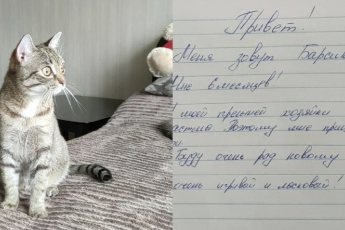 Привет!
Меня зовут Барси
Мне 8 месяцев!
моей прежней хозяйки
Поэтому мне при
Буду очень рад новому
очень игривый и ласковый!